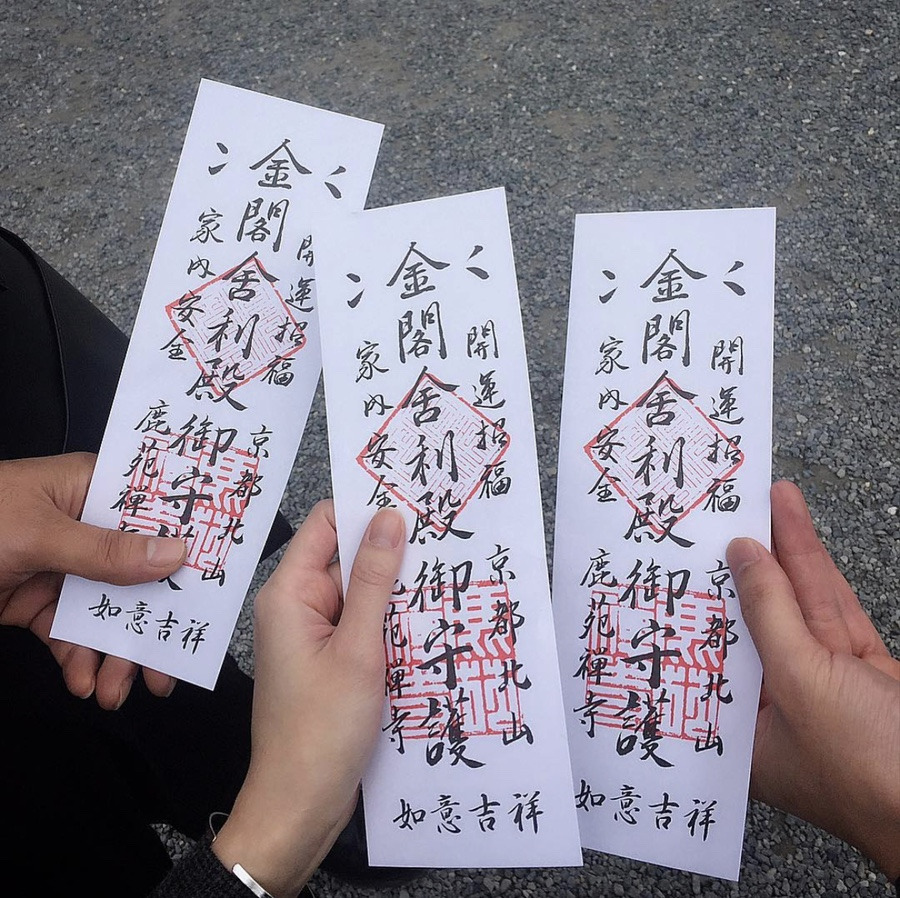 金閣舎利殿御守護
開運招福
家内安全
京都北山
鹿苑禅寺
如意吉祥
金閣舎利殿御守護
開運招福
家内安全
京都北山
鹿苑禅寺
如意吉祥
金閣舎利殿御守護
開運招福
家内安全
京都北山
鹿苑禅寺
如意吉祥